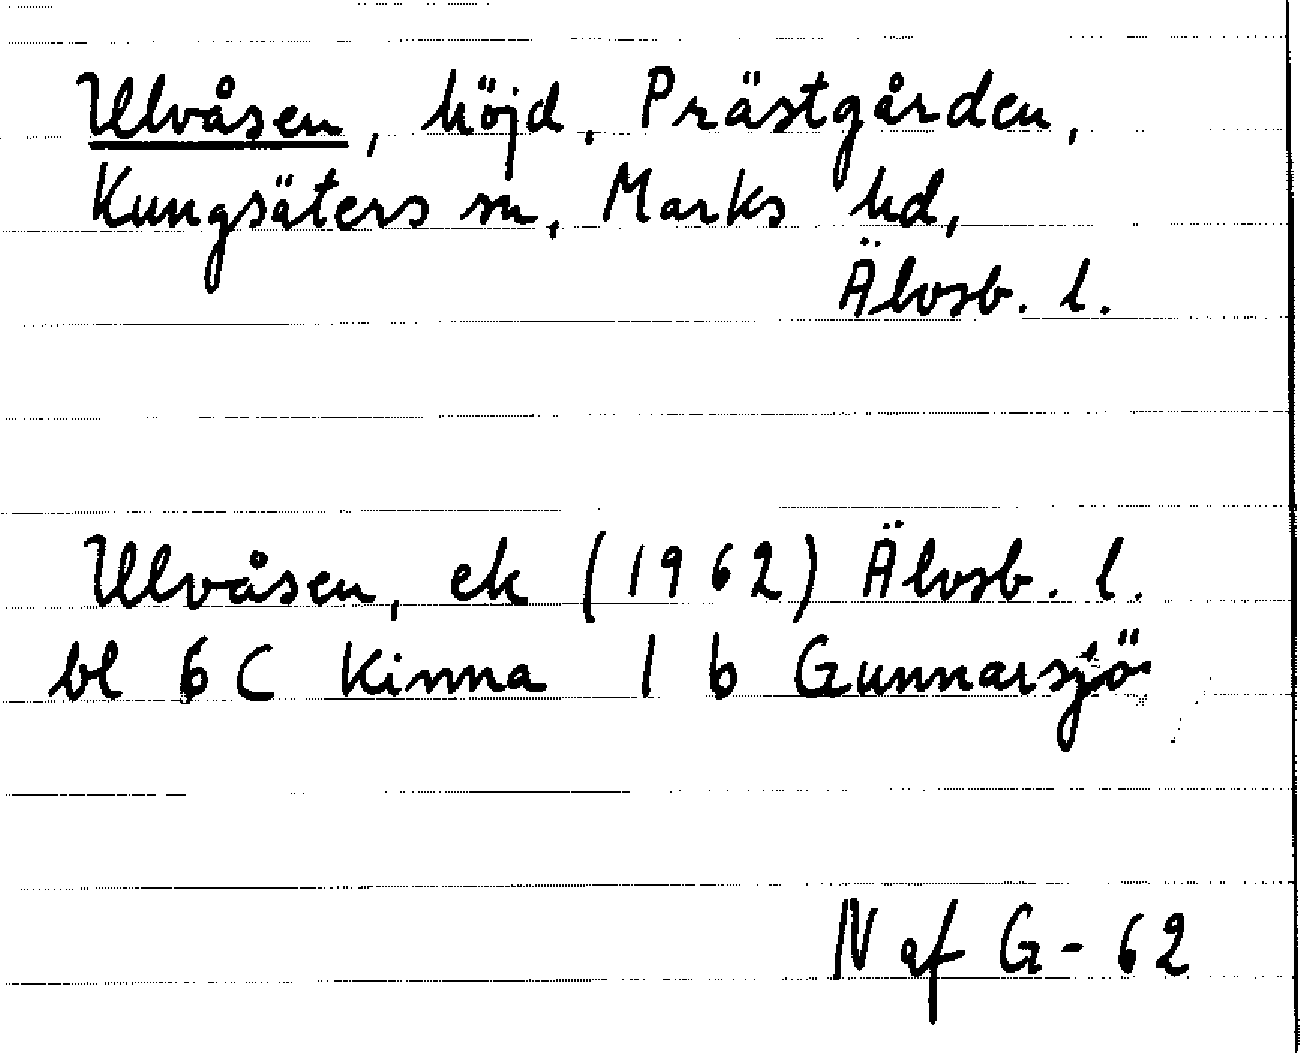 Ulvåsen, höjd, Prästgården,
Kungsäters sn, Marks hd,
Älvsb. l.
Ulvåsen, ek (1962) Älvsb. l.
bl 6 C Kinna 1 b Gunnarsjö
N af G - 62